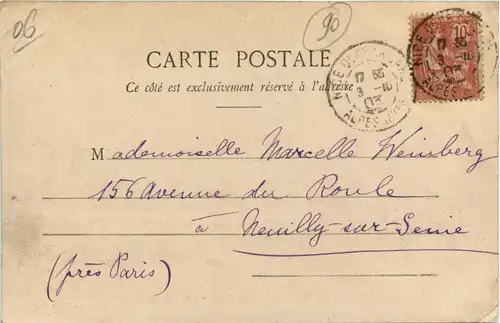 06
90
CARTE POSTALE
Ce côté est exclusivement réservé à l'adresse
10
17
3
03
ALPES
NICE
17
3
03
Mademoiselle Marcelle Weinberg
156 Avenue du Roule
à Neuilly-sur-Seine
(près Paris)